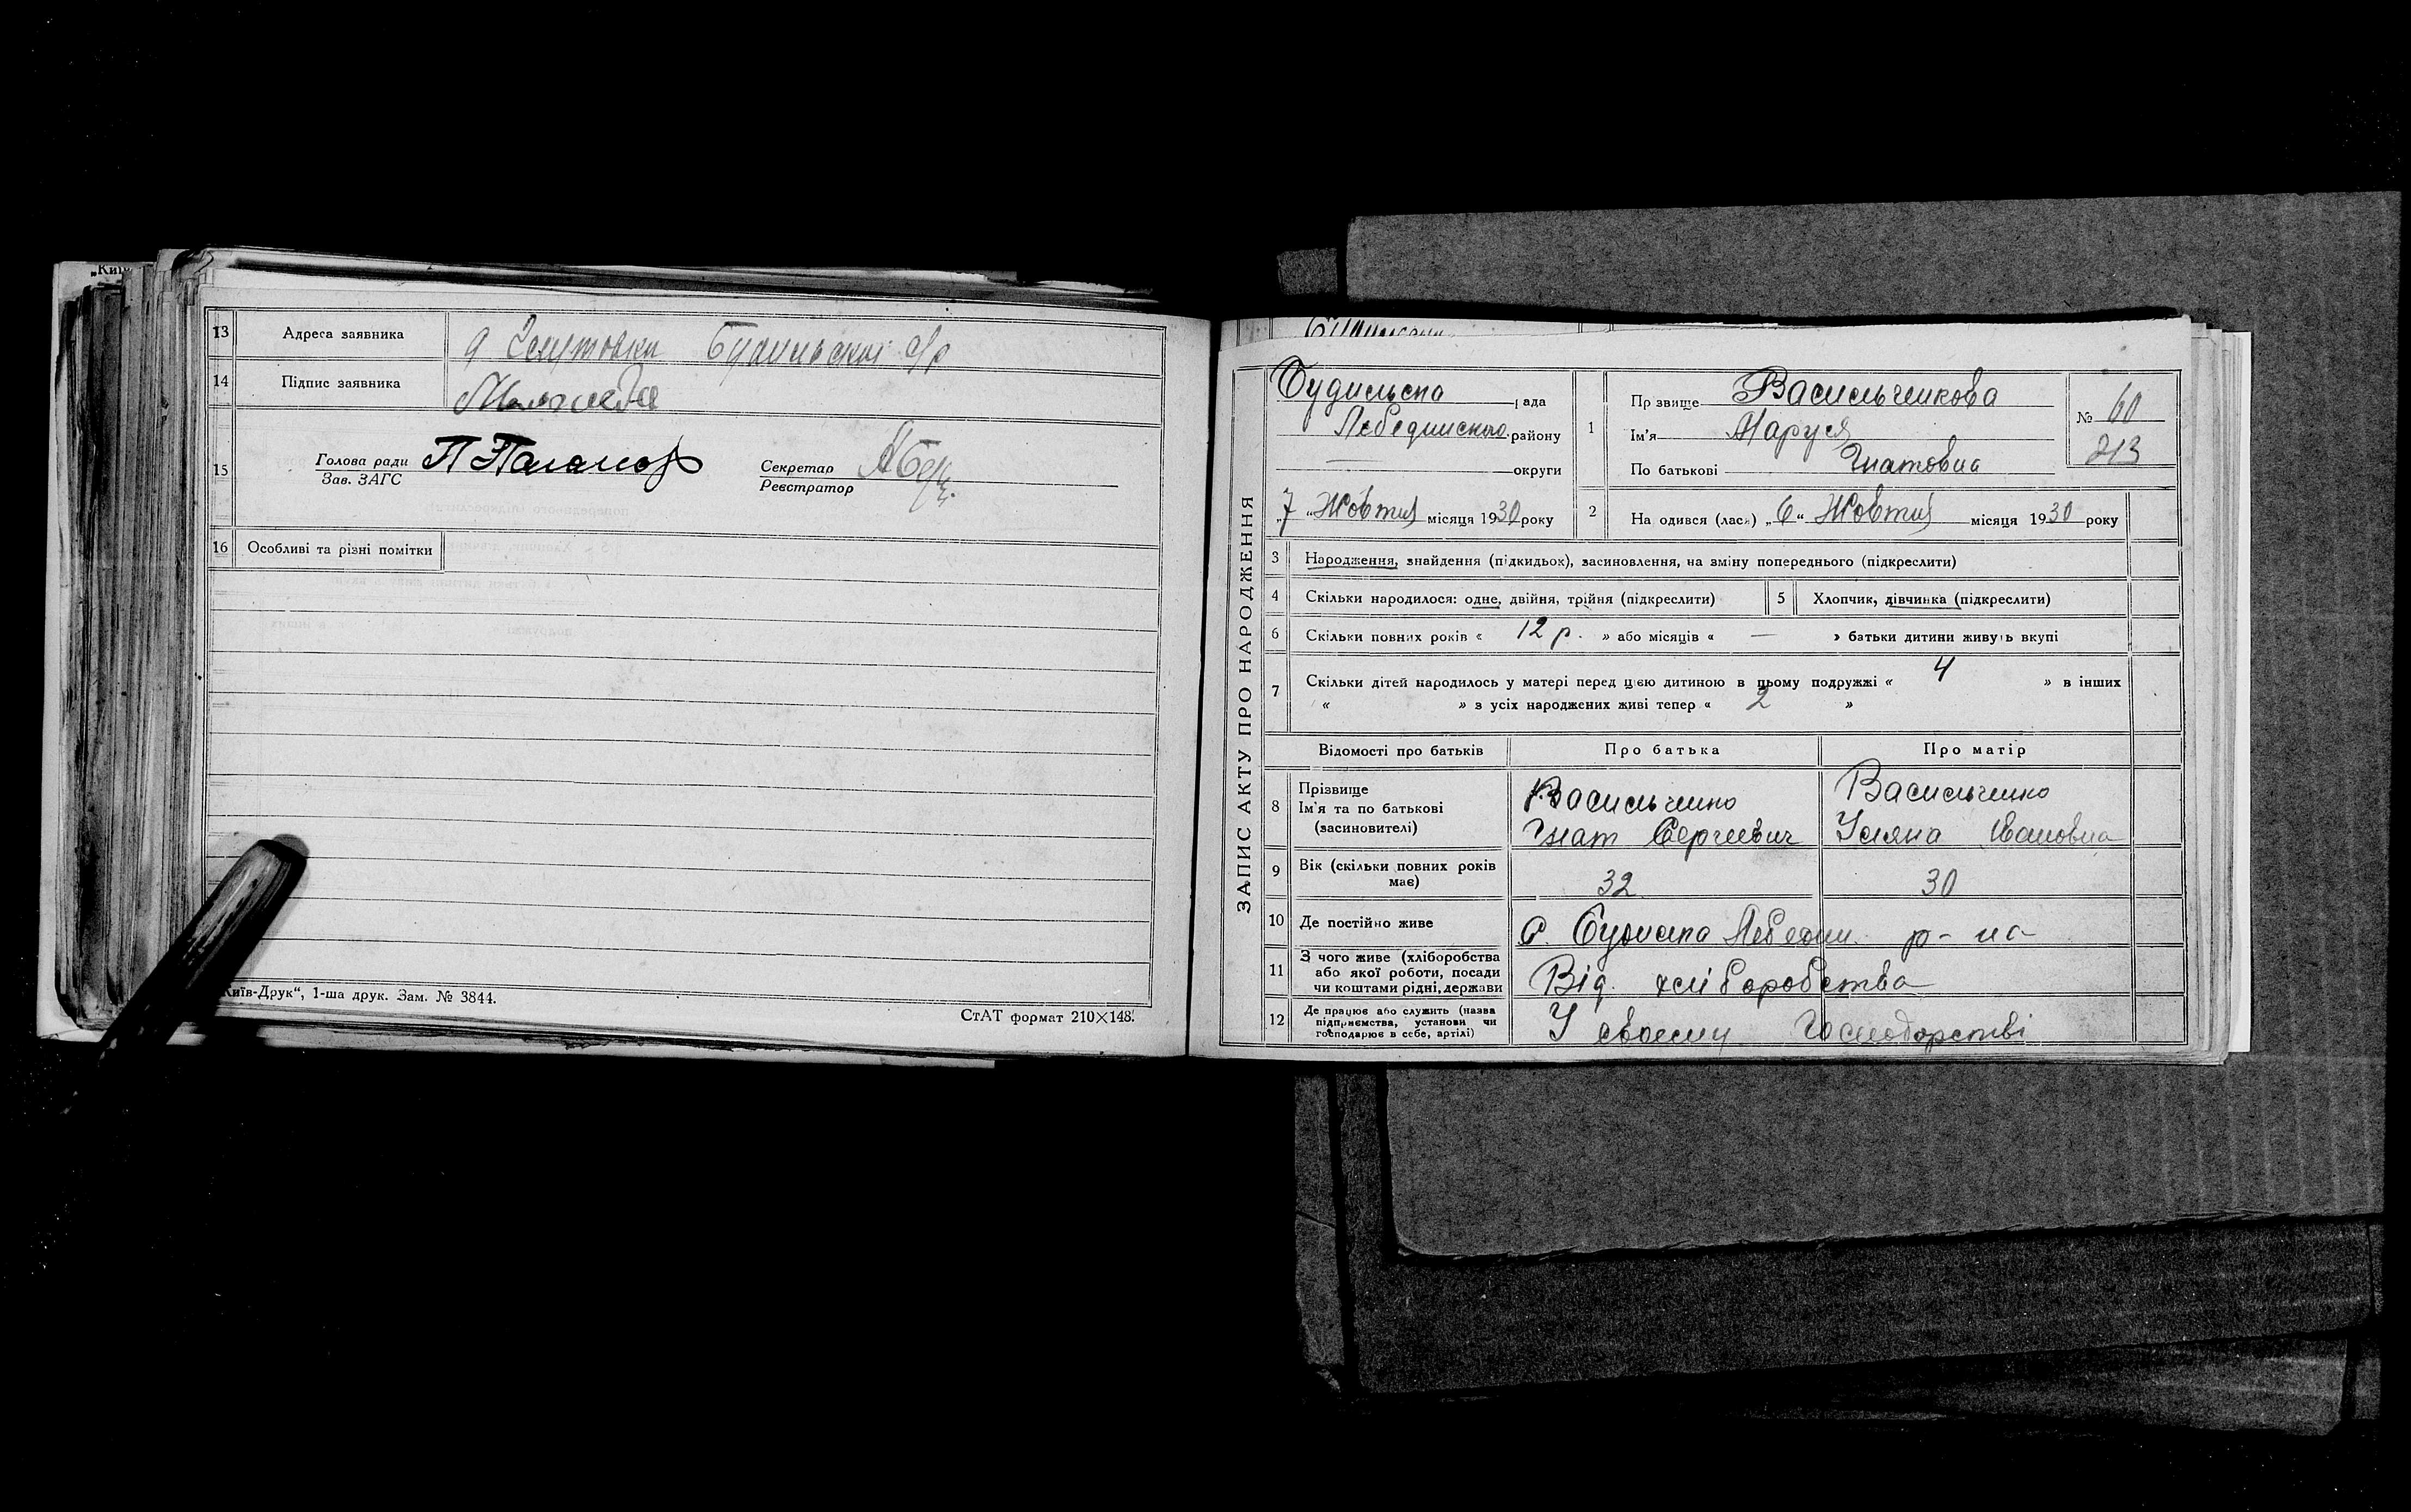 „Київ
13 Адреса заявника
14 Підпис заявника
15 Голова ради
Зав. ЗАГС
Секретар
Реєстратор
16 Особливі та різні помітки
Київ-Друк“, 1-ша друк. Зам. № 3844.
СтАТ формат 210×148.
ЗАПИС АКТУ ПРО НАРОДЖЕННЯ
Будильська рада
Лебединского району
округи
„7“ Жовтня місяця 1930 року
1 Прізвище Васильченкова
Ім'я Маруся
По батькові Гнатовна
№ 60
213
2 Народився (лась) „6“ Жовтня місяця 1930 року
3 Народження, знайдення (підкидьок), засиновлення, на зміну попереднього (підкреслити)
4 Скільки народилося: одне, двійня, трійня (підкреслити) 5 Хлопчик, дівчинка (підкреслити)
6 Скільки повних років « 12 р. » або місяців « — » батьки дитини живуть вкупі
7 Скільки дітей народилось у матері перед цією дитиною в цьому подружжі « 4 » в інших
« » з усіх народжених живі тепер « 2 »
Відомості про батьків Про батька Про матір
8 Прізвище
Ім'я та по батькові
(засиновителі)
Васильченко
Гнат Сергеевич
Васильченко
Уляна Івановна
9 Вік (скільки повних років має) 32 30
10 Де постійно живе с. Будилка Лебедин. р-на
11 З чого живе (хліборобства
або якої роботи, посади
чи коштами рідні, держави
Від хліборобства
12 Де працює або служить (назва
підприємства, установи чи
господарює в себе, артілі)
У своєму господарстві